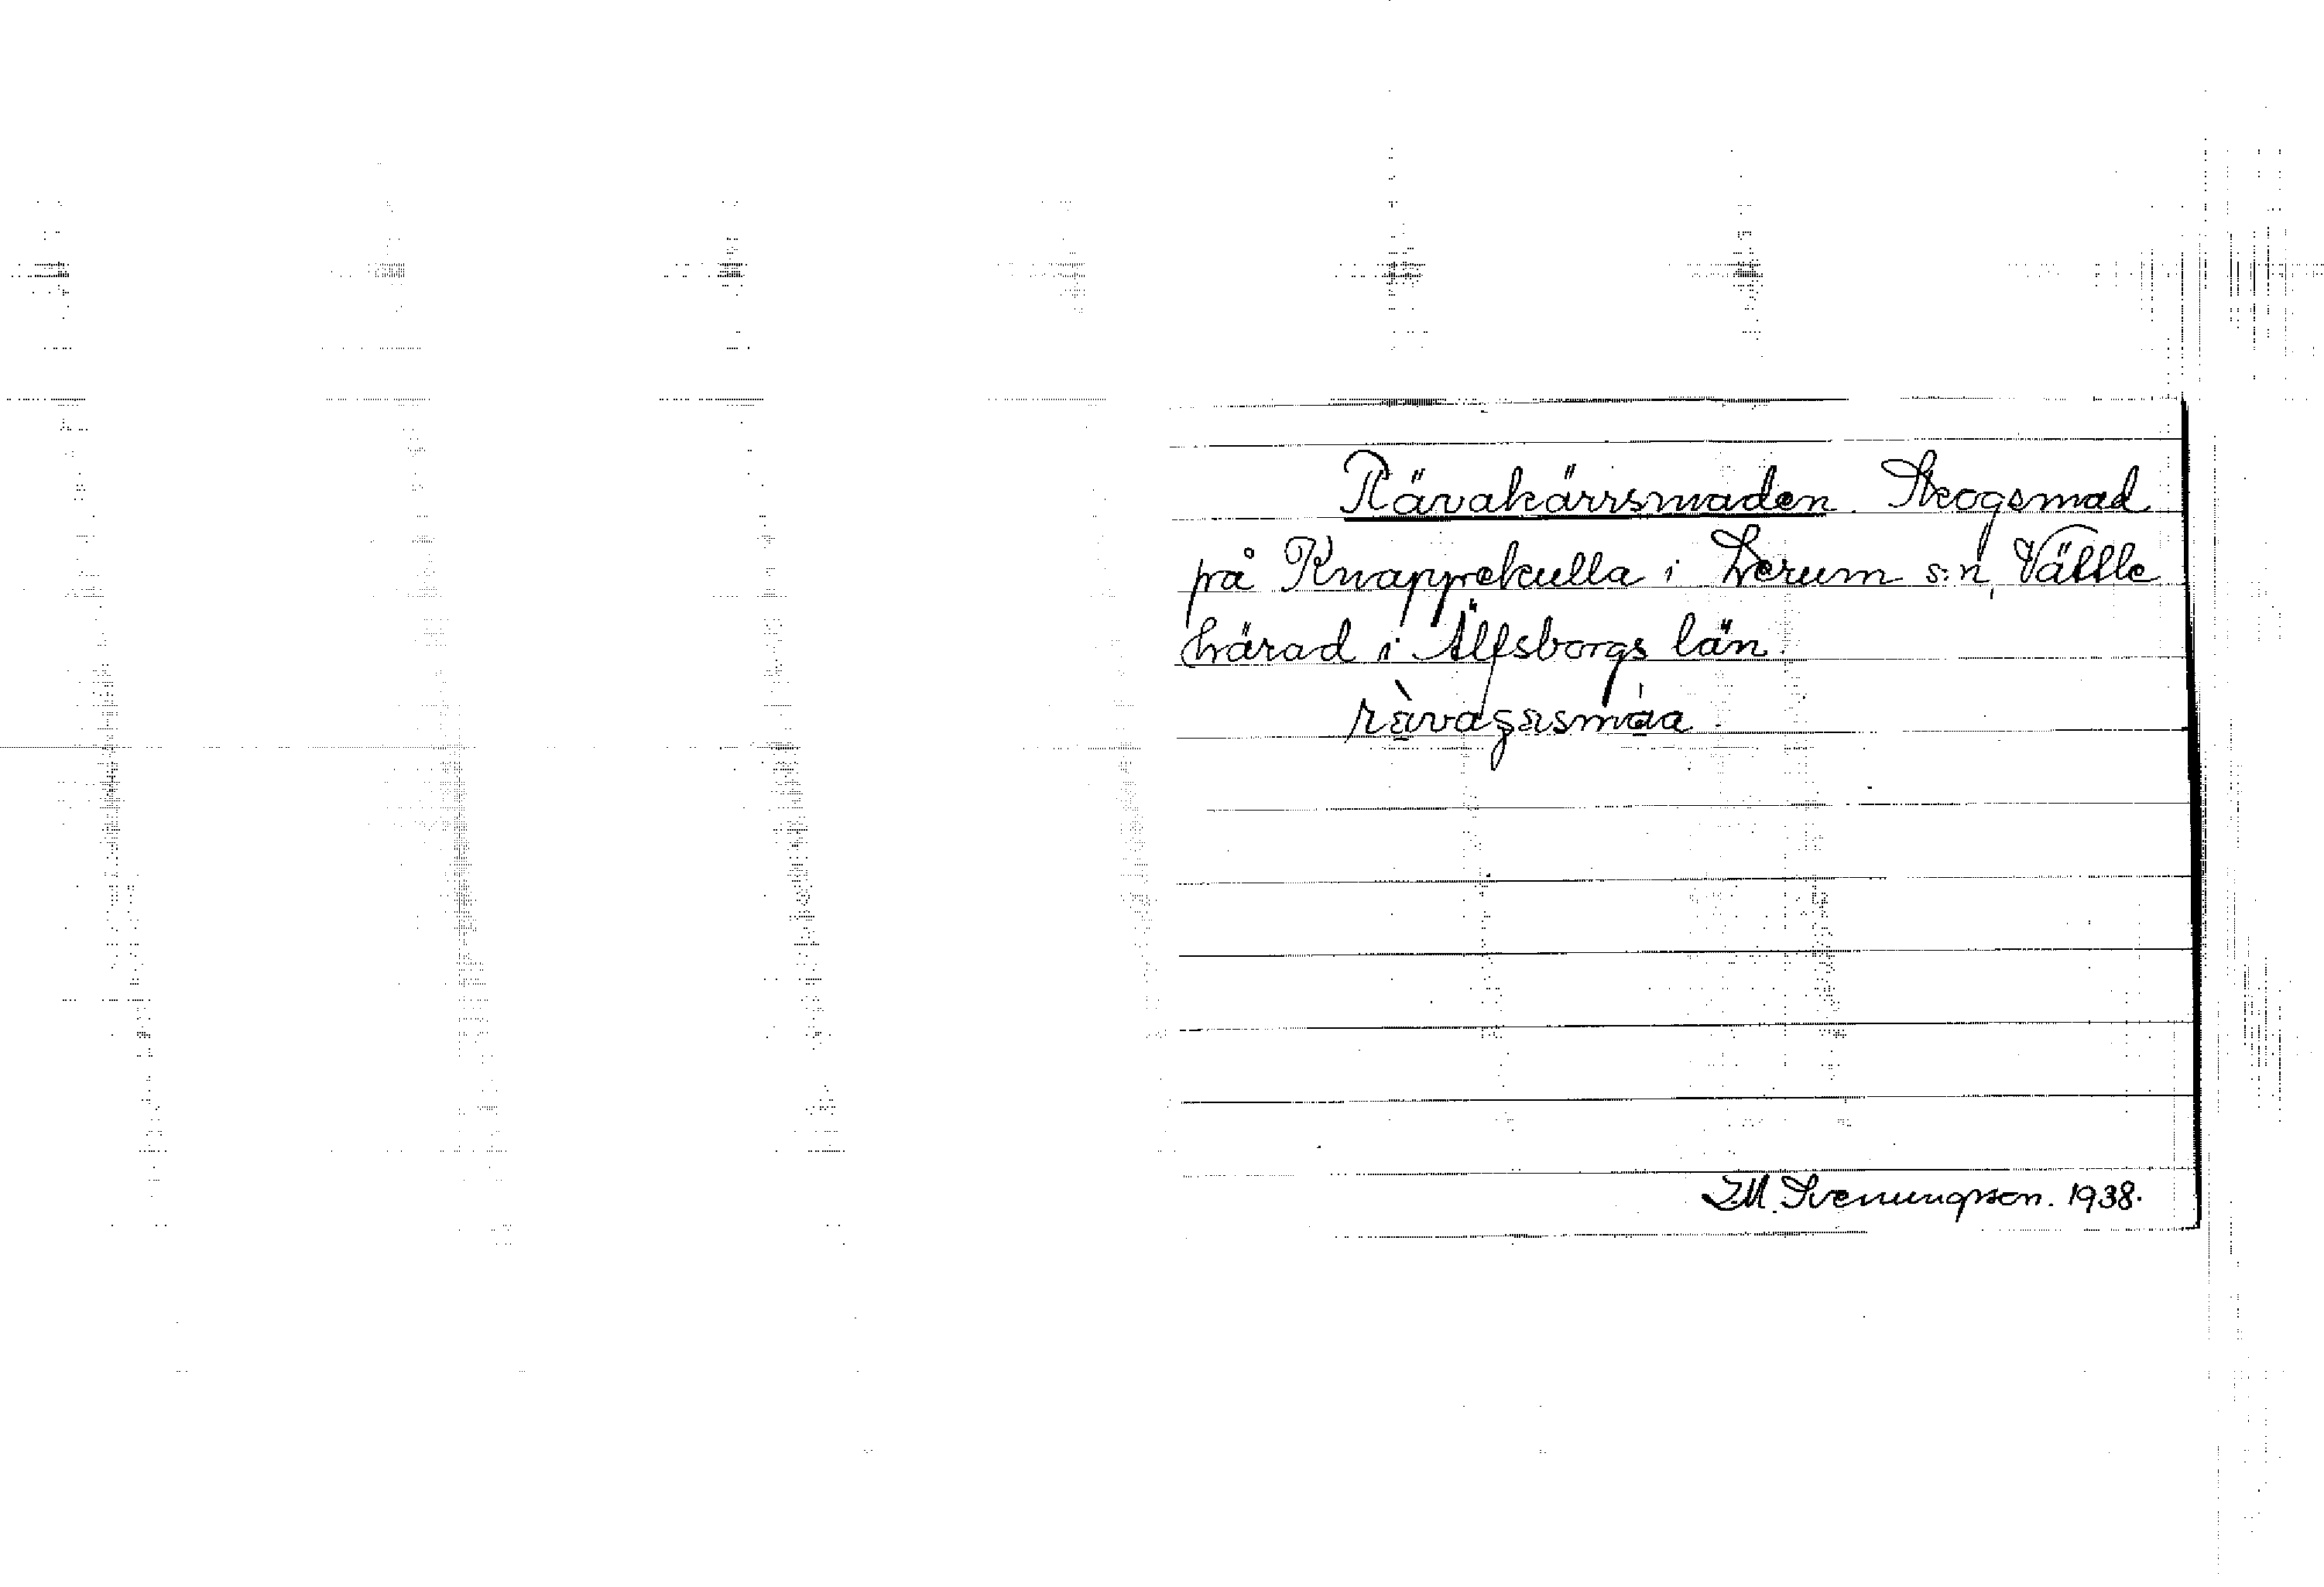 Rävakärrsmaden. Skogsmad
på Knappekulla i Lerum s:n, Vättle
härad i Älfsborgs län.
rävagæsmáa
I.M. Svenungsson. 1938.